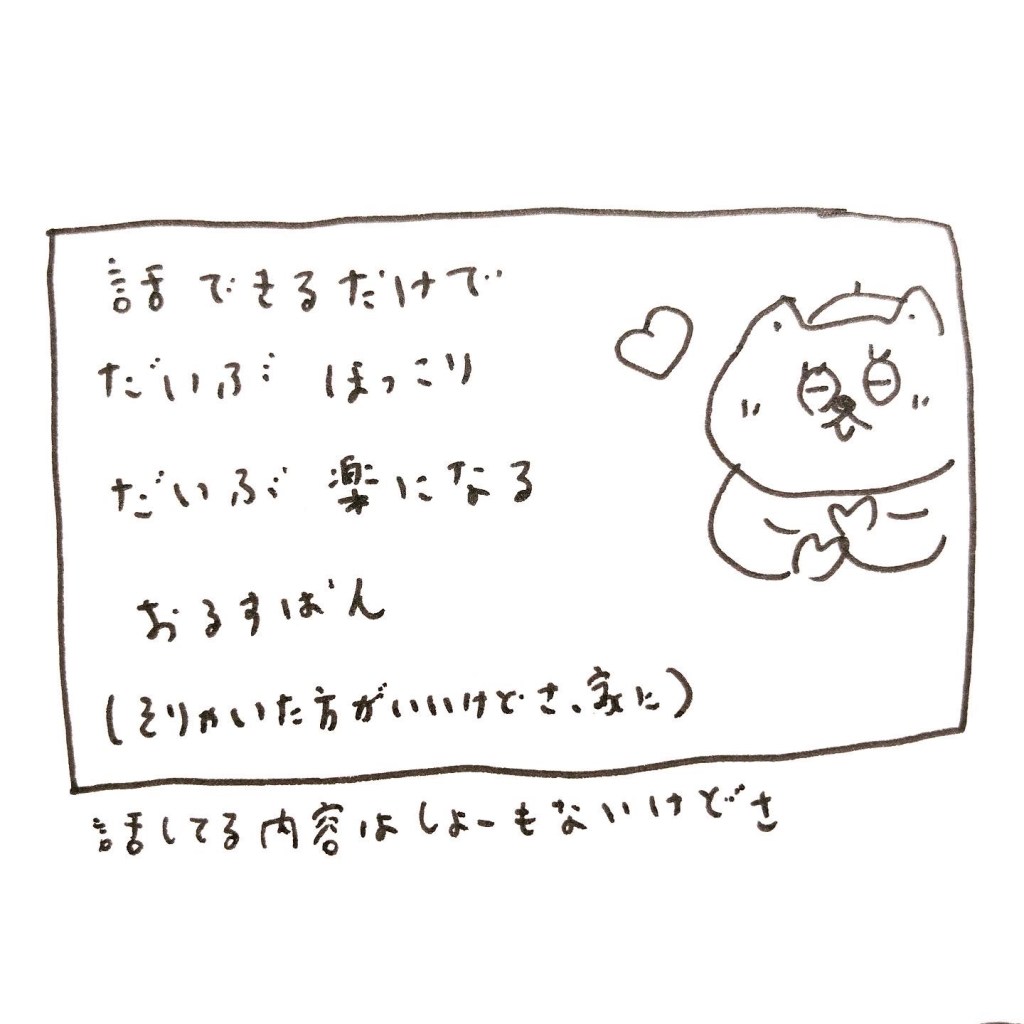 話できるだけで
だいぶ ほっこり
だいぶ 楽になる
おるすばん
(そりゃいた方がいいけどさ、家に)
話してる内容はしょーもないけどさ